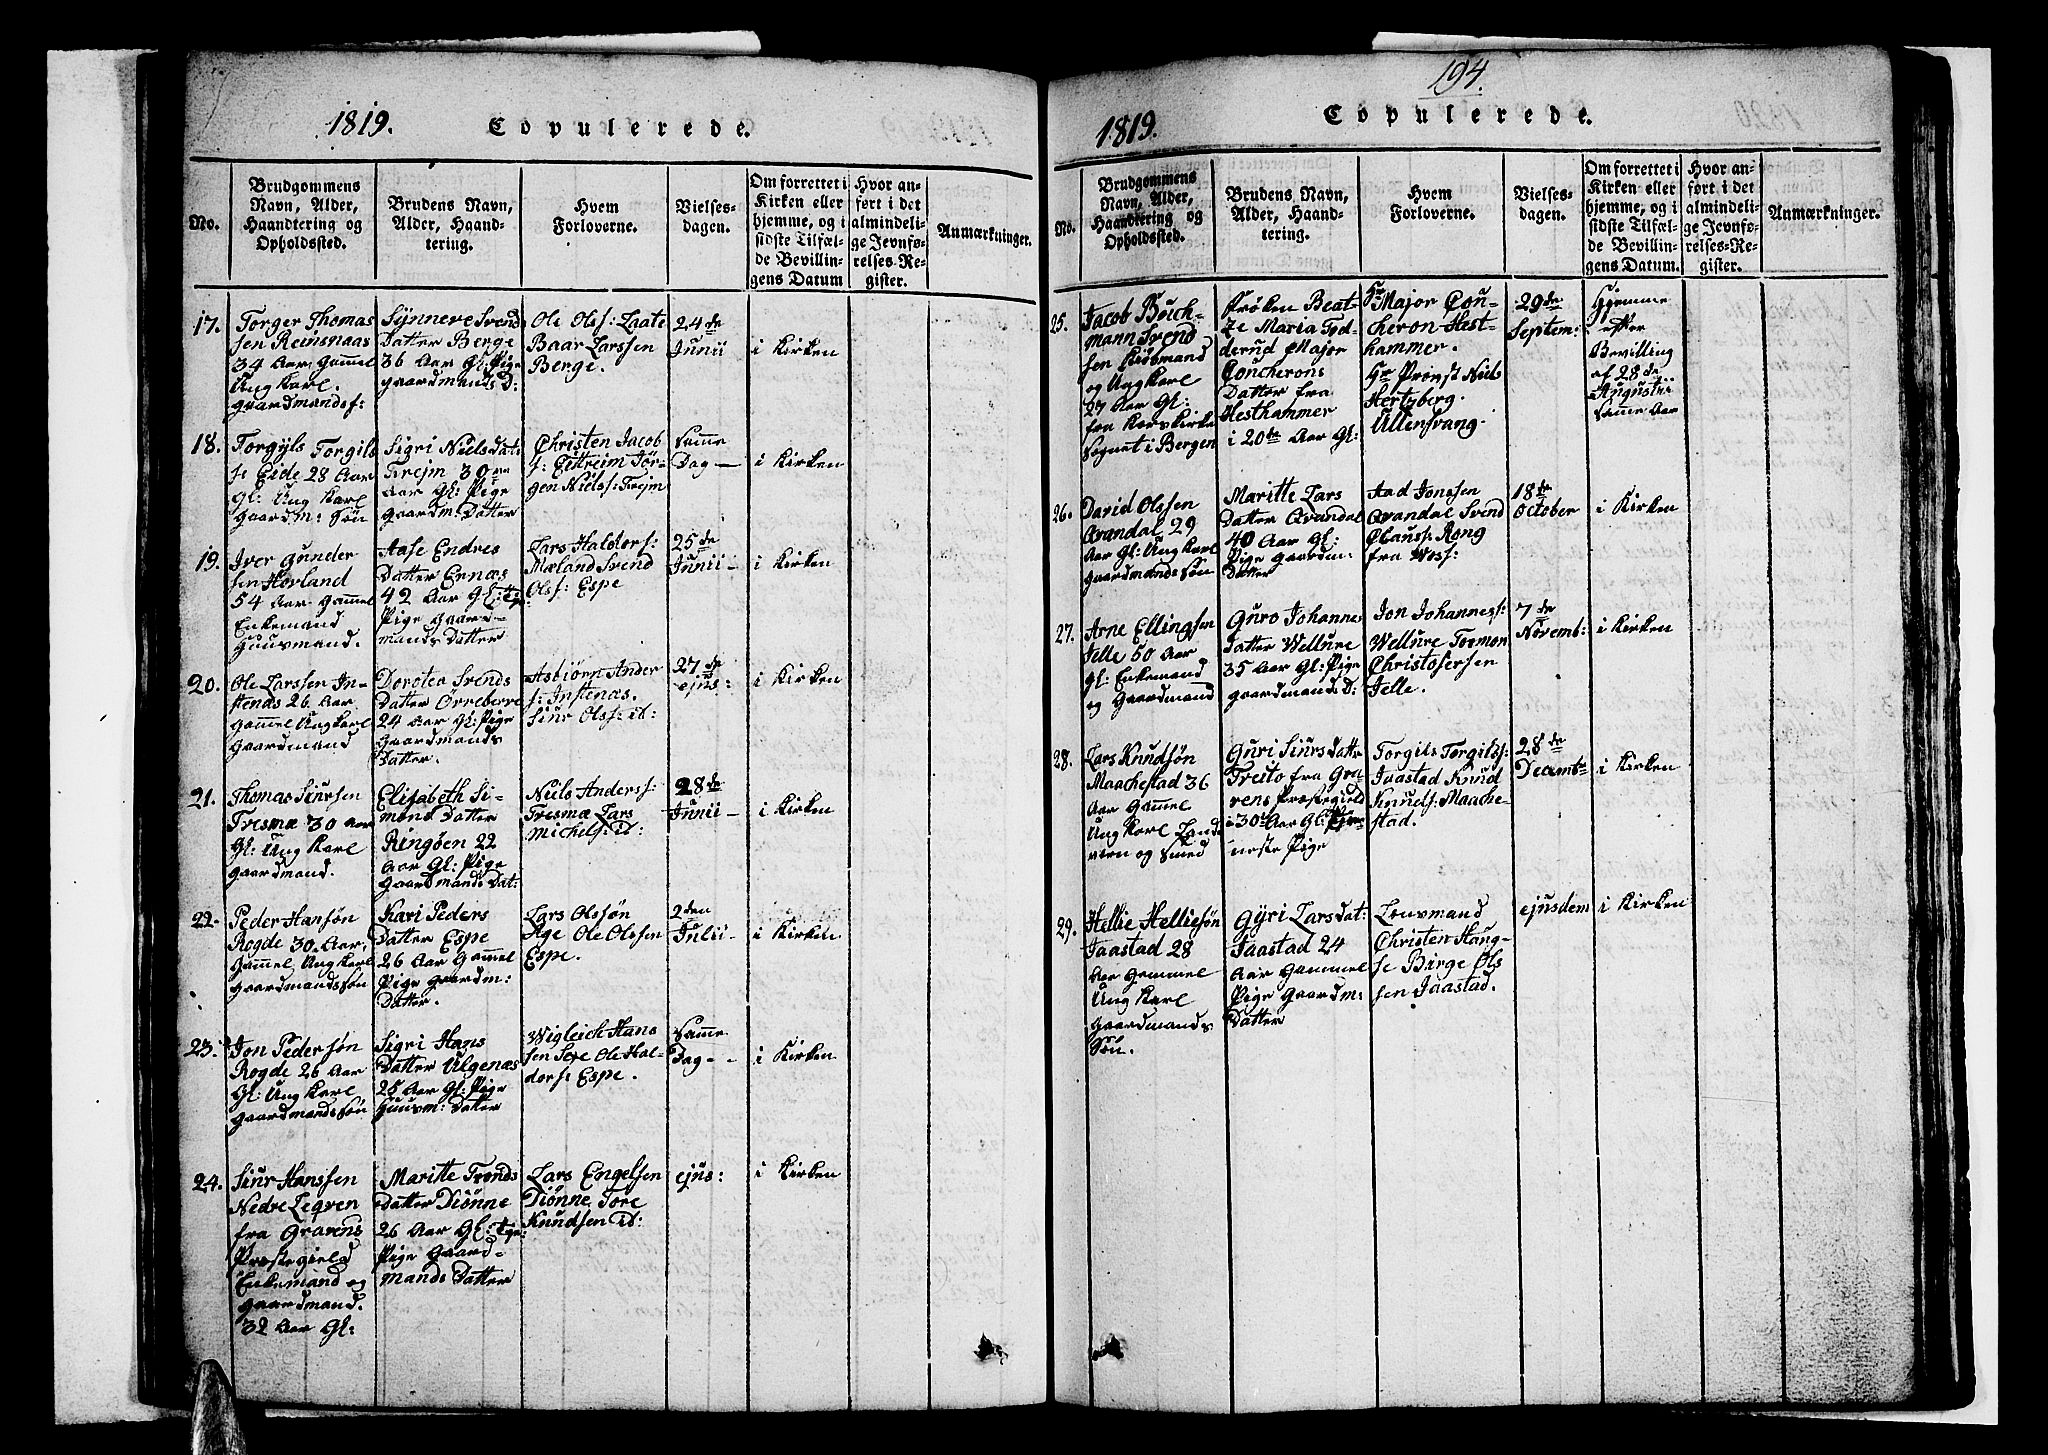 1819. Copulerede.
No.
Brudgommens
Navn, Alder,
Haandtering og
Opholdssted.
Brudens Navn,
Alder, Haand-
tering.
Hvem
Forloverne.
Vielses-
dagen.
Om forrettet i
Kirken eller
hjemme, og i
sidste Tilfæl-
de Bevillin-
gens Datum
Hvor an-
ført i det
almindeli-
ge Jevnfø-
relses-Re-
gister.
Anmærkninger.
17.
Torger Thomas
sen Reinsnaas
34 Aar Gammel
Ung Karl.
gaardmands f:
Synneve Svend
Datter Berge
36 Aar Gl: Pige
gaardmands D:
Ole Ols: Laate
Baar Larssen
Berge.
24de
Junii
i Kirken
18.
Torgyls Torgils
s: Eide 28 Aar
Gl: Ung Karl
Gaardm: Søn
Sigri Niels dat:
Trejm 30
Aar Gl: Pige
Gaardm: Datter
Christen Jacob
s: Eittreim Jør-
gen Niels: Trejm
Samme
Dag —
i Kirken
19.
Iver Gunder
sen Hovland
54 Aar Gammel
Enkemand
Huusmand.
Aase Endres
Datter Ernæs
42 Aar Gl:
Pige Gaard-
mands Datter
Lars Haldors:
Mæland Svend
Ols: Espe
25de
Junii -
i Kirken
20.
Ole Larssen In-
stenæs 26 Aar
Gammel Ung Karl
Gaardmand
Dorotea Svends
Datter Ørreberre
24 Aar Gl: Pige
Gaardmands
Datter.
Asbiørn Ander
s: Instenæs.
Siur Ols: id:
27de
ejus:
i Kirken
21.
Thomas Siursen
Tresmæ 30 Aar
Gl: Ung Karl
Gaardmand.
Elisabeth Si-
mons Datter
Ringøen 22
Aar Gl: Pige
Gaardmands Dat:
Niels Anders:
Tresmæ Lars
Michels: id:
28de
Junii -
i Kirken
22.
Peder Hansøn
Rogde 30 Aar
Gammel Ung Karl
Gaardmandssøn
Kari Peders
Datter Espe
26 Aar Gammel
Pige Gaardm:
Datter.
Lars Olssøn
Age Ole Olssen
Espe.
2den
Julii -
i Kirken
23.
Jon Pedersøn
Rogde 26 Aar
Gl: Ung Karl
Gaardmandssøn
Sigri Hans
Datter Ulgenæs
25 Aar Gl: Pige
Huusm: Datter
Wigleich Hans
sen Sexe Ole Hal-
dors: Espe.
Samme
Dag - -
i Kirken
24.
Siur Hanssen
Nedre Legren
fra Gravens
Præstegield
Enkemand og
Gaardmand.
32 Aar Gl:
Maritte Tronds
Datter Diønne
26 Aar Gl:
Pige Gaard-
mands Datter
Lars Engelsen
Diønne Tore
Knudsen id:
ejus:
i Kirken
194.
1819. Copulerede.
No.
Brudgommens
Navn, Alder,
Haandtering og
Opholdssted.
Brudens Navn,
Alder, Haand-
tering.
Hvem
Forloverne.
Vielses-
dagen.
Om forrettet i
Kirken eller
hjemme, og i
sidste Tilfæl-
de Bevillin-
gens Datum.
Hvor an-
ført i det
almindeli-
ge Jevnfø-
relses-Re-
gister.
Anmærkninger.
25.
Jacob Boich-
mann Svend
sen Kiøbmand
og Ung Karl
27 Aar Gl:
fra Korskirke
Sognet i Bergen
Frøken Beat-
ze Maria Tod-
derud Major
Concherons
Datter fra
Hesthammer
i 20de Aar Gl:
Hr Major Con-
cheron Hest-
hammer.
Hr Provst Niels
Hertzberg.
Ullensvang.
29de
Septem:
Hjemme
efter
Bevilling
af 28de
Augustii
samme Aar
26.
David Olssen
Qvandal 29
Aar Gl: Ung Karl
Gaardmands Søn
Maritte Lars
Datter Qvandal
40 Aar Gl:
Pige Gaardm:
Datter
Aad Jonssen
Qvandal Svend
Clauss: Rong
fra Woss:
18de
October
i Kirken
27.
Arne Ellingsen
Jelle 50 Aar
Gl: Enkemand
og Gaardmand
Guro Johannes
Datter Wellure
35 Aar Gl: Pige
gaardmands D:
Jon Johanness:
Wellure Tormon
Christofersen
Jelle.
7de
Novemb:
i Kirken
28.
Lars Knudsøn
Maachestad 36
Aar Gammel
Ung Karl Land
værn og Smed
Guri Siurs datter
Treito fra Gra-
vens Præstegield
i 30te Aar Gl:
neste Pige
Torgils Torgilss:
Jaastad Knud
Knuds: Maache-
stad.
28de
Decembr
i Kirken
29.
Hellie Helliesøn
Jaastad 28
Aar Gammel
Ung Karl
Gaardmands
Søn.
Gyri Lars dat:
Jaastad 24
Aar Gammel
Pige Gaardm:
Datter
Lensmand
Christen Haug-
se Birge Ols
sen Jaastad.
ejusdem
i Kirken